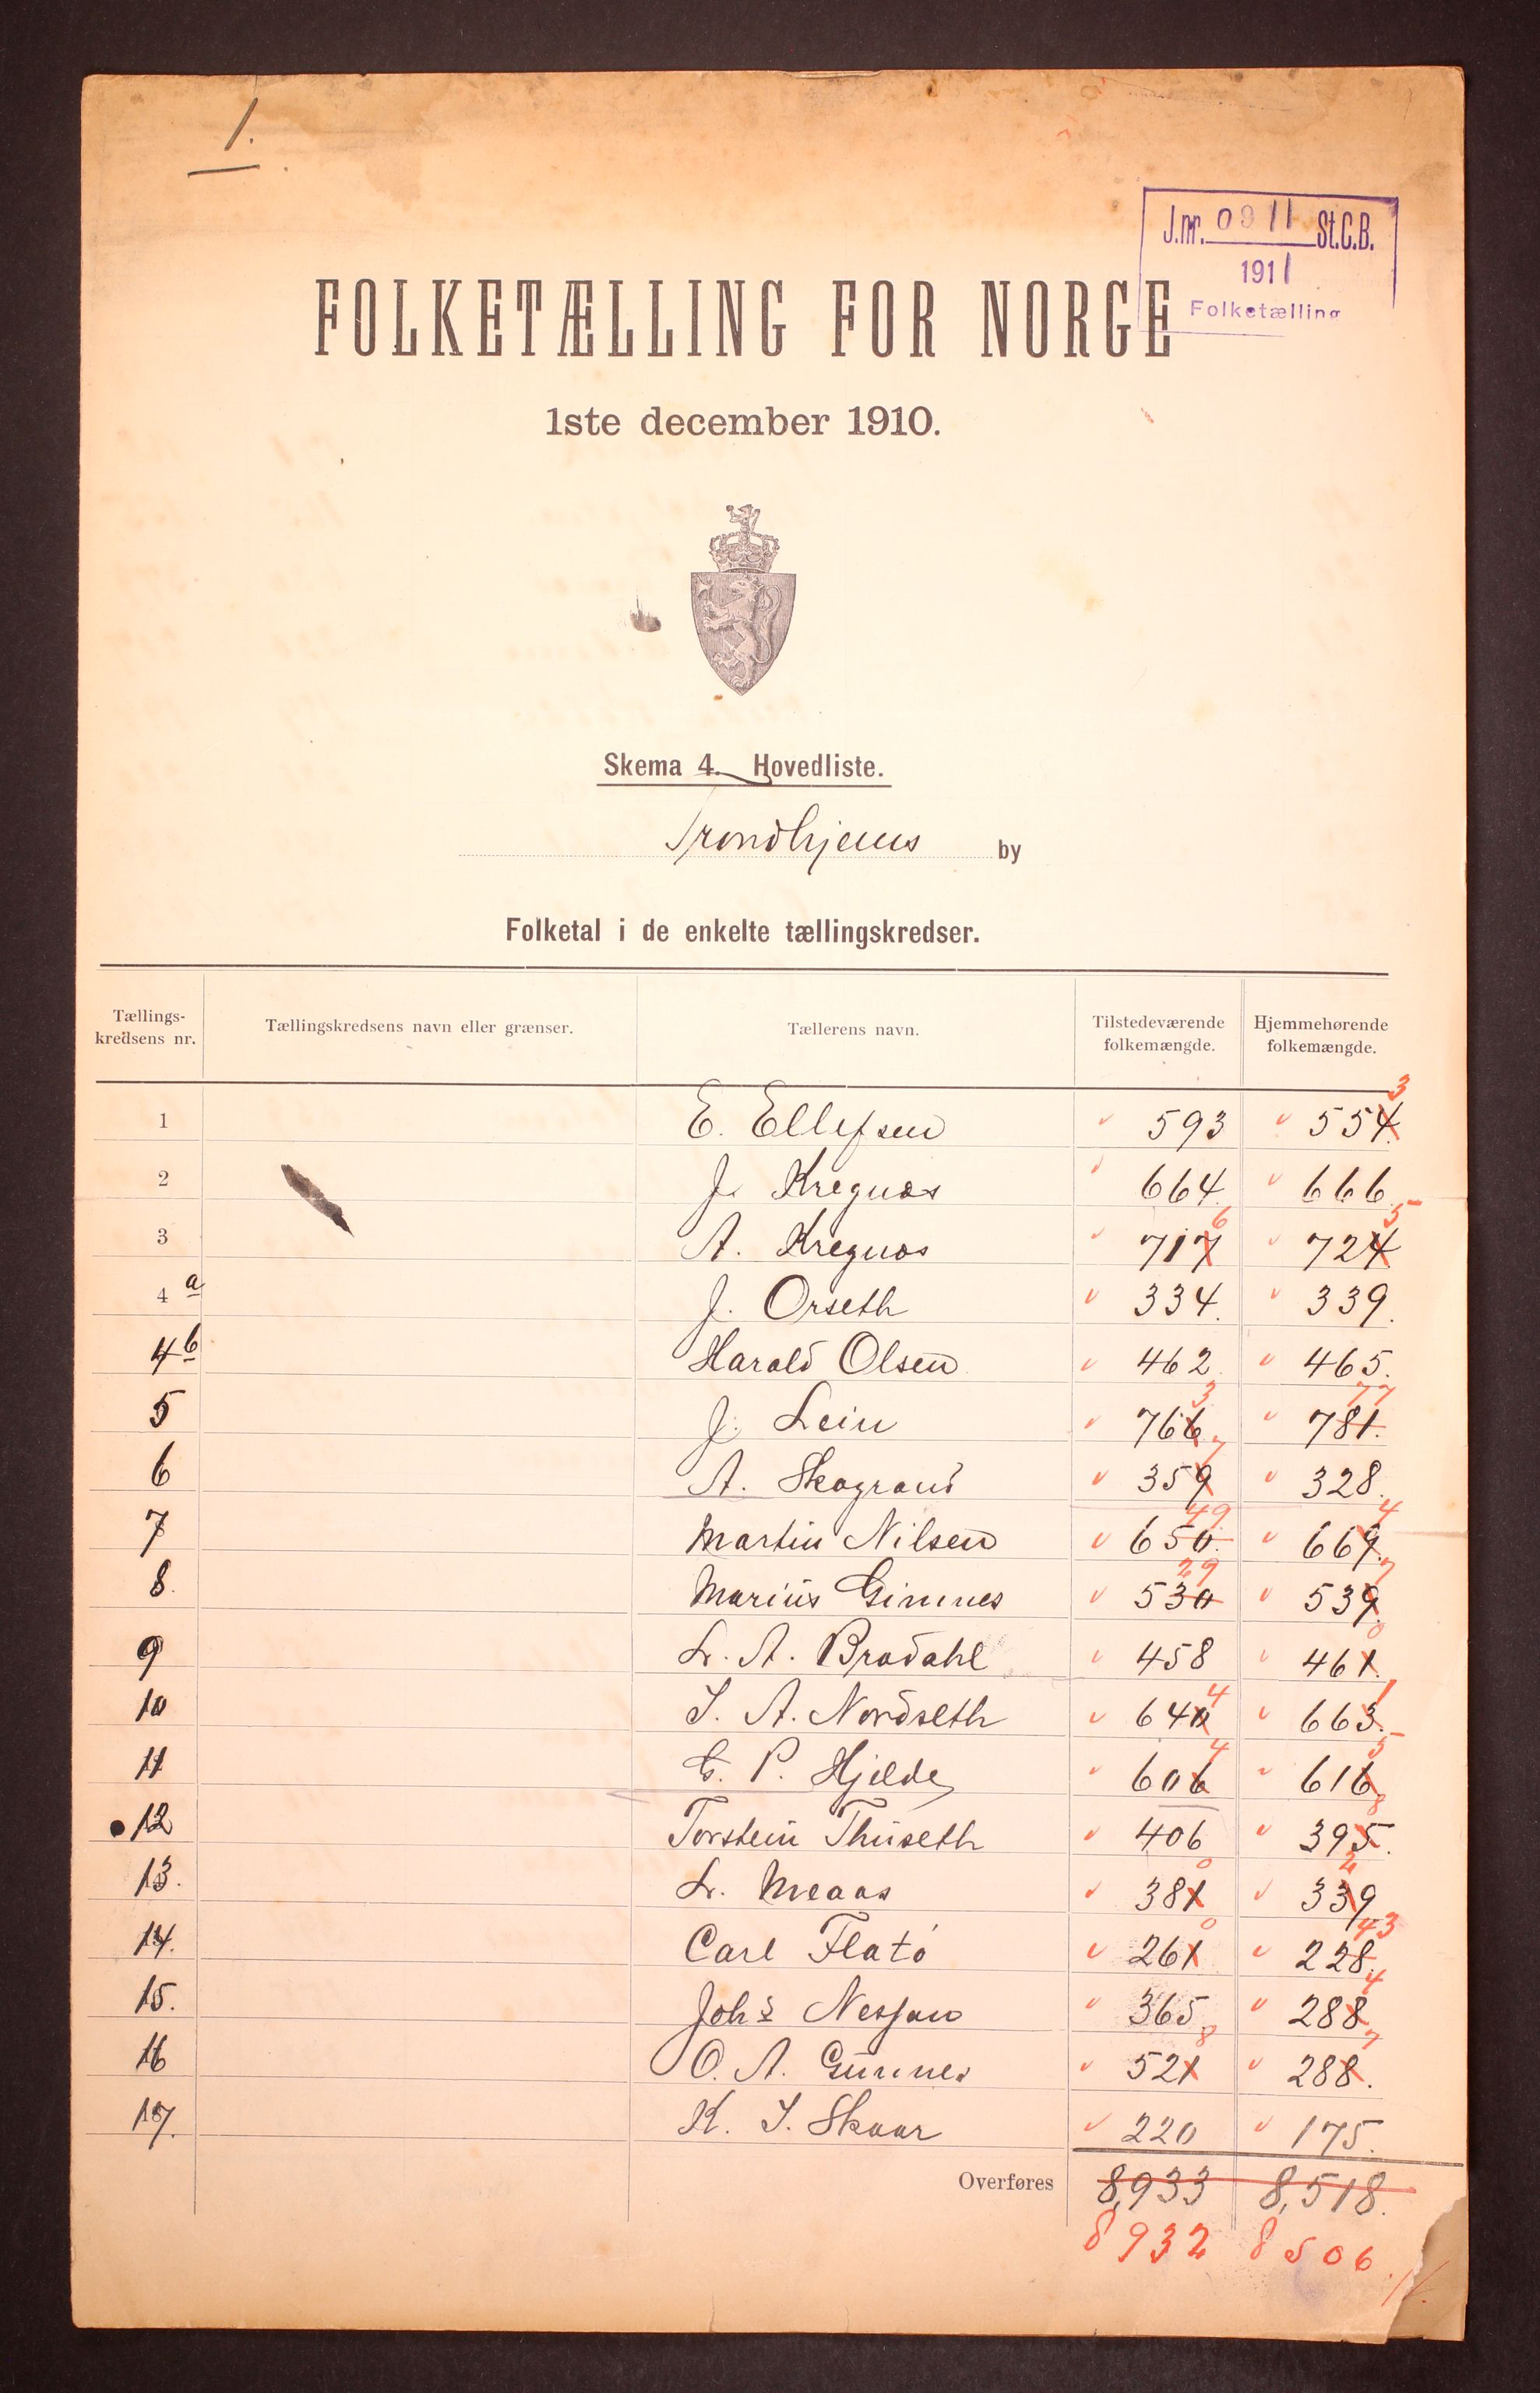 1.
J.nr. 0911 St.C.B.
1911
Folketælling
FOLKETÆLLING FOR NORGE
1ste december 1910.
Skema 4. Hovedliste.
Trondhjems by
Folketal i de enkelte tællingskredser.
Tællings-kredsens nr. Tællingskredsens navn eller grænser. Tællerens navn. Tilstedeværende folkemængde. Hjemmehørende folkemængde.
1 E. Ellefsen 593 554 3
2 J. Kregnæs 664. 666
3 A. Kregnæs 717 6 724 5
4 a J. Orseth 334. 339.
4 b Harald Olsen 462 465.
5 J. Lein 766 3 781. 77
6 A. Skogrand 359 7 328.
7 Martin Nilsen 650. 49 669. 4
8. Marius Gimnes 530 29 539. 7
9 L. A. Bradahl 458 461. 0
10 I. A. Nordseth 640 4 663. 1
11 G. P. Hjelde 606 4 616 5
12 Torstein Thuseth 406 395. 8
13. L. Meaas 381 0 339 2
14. Carl Flatö 261 0 228. 43
15. Johs Nessjan 365 288 4
16 O. A. Gunnes 521 8 288. 7
17. K. I. Skaar 220 175.
Overføres 8,933 8,518.
8932 8506.